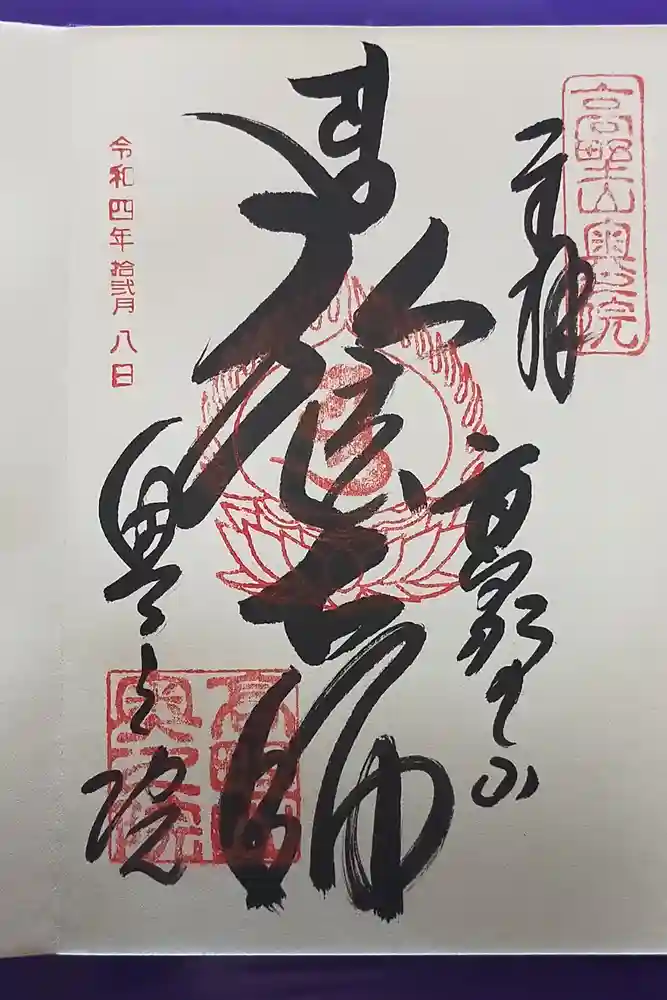 高野山奥之院
奉拝
高野山
弘法大師
奥之院
高野山
奥之院
令和四年拾弐月八日